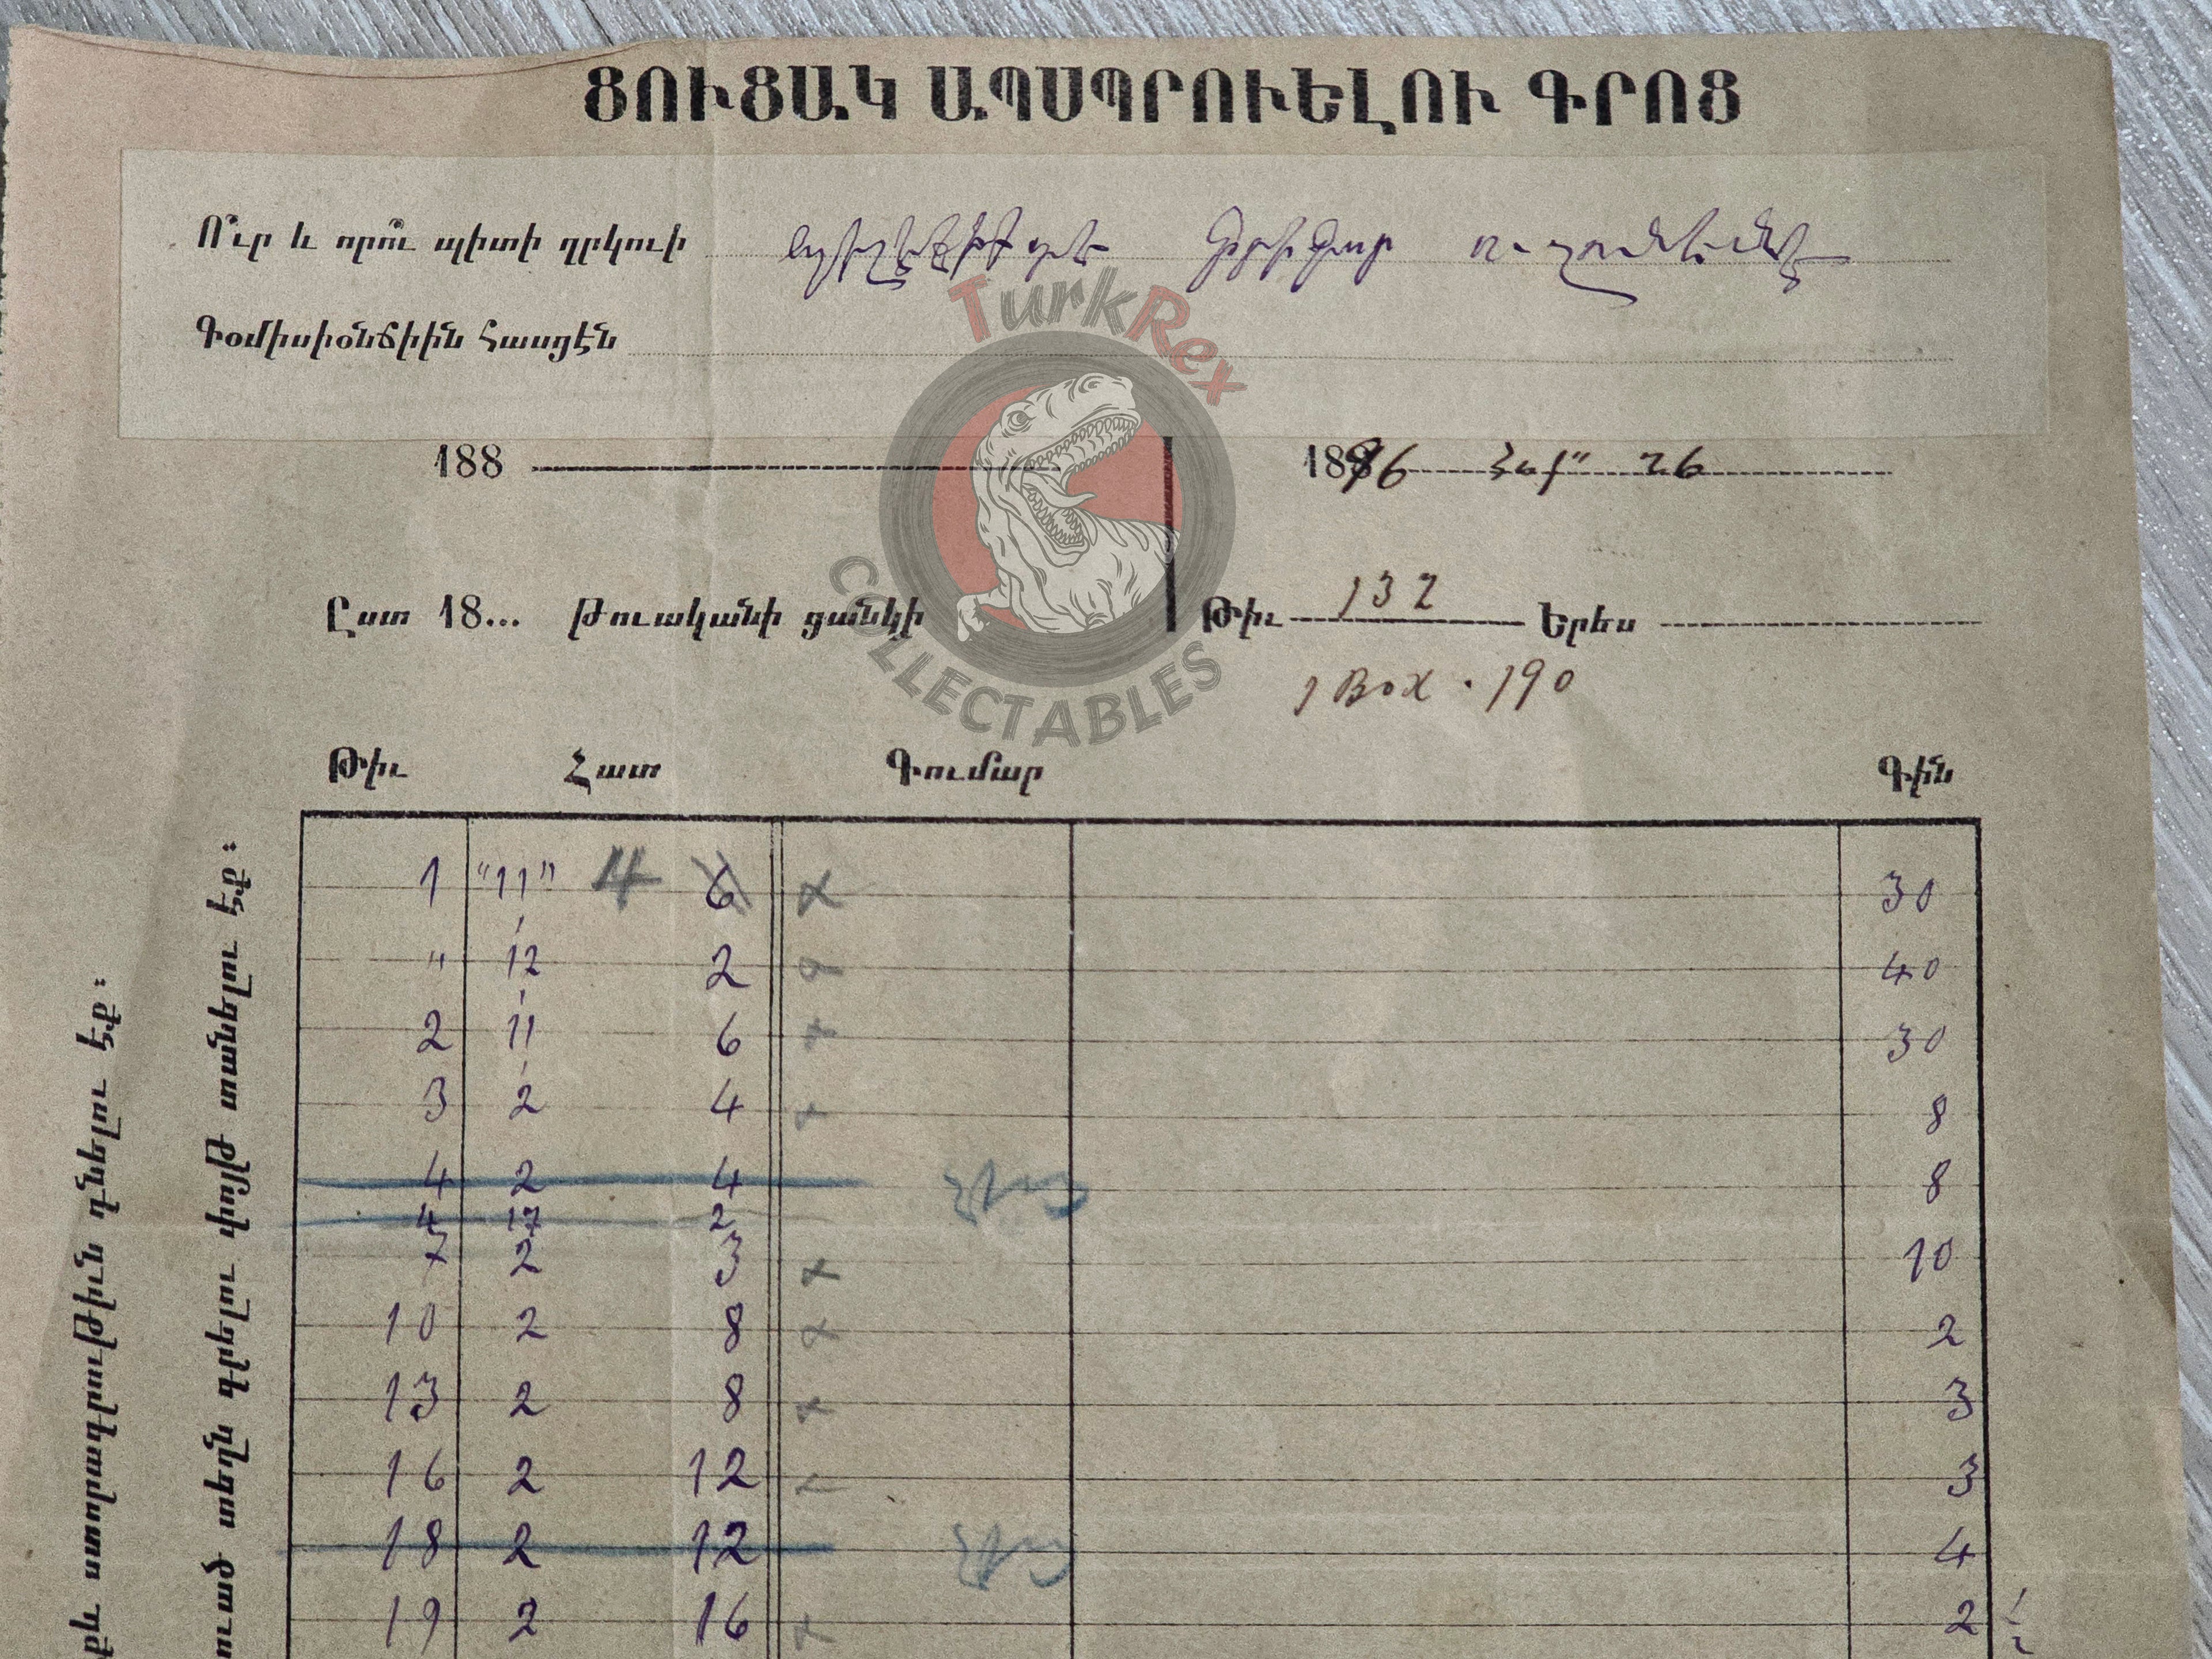 ՑՈՒՑԱԿ ԱՊՍՊՐՈՒԵԼՈՒ ԳՐՈՑ
Ո՞ւր և որո՞ւ պիտի ղրկուի
Գօմիսիօնճիին հասցէն
188
1896 26
Ըստ 18... Թուականի ցանկի
Թիւ 132 Երես
1 Box . 190
Թիւ Հատ Գումար Գին
1 "11" 4 6 30
" 12 2 40
2 11 6 30
3 2 4 8
4 2 4 չկայ 8
4 17 2
7 2 3 10
10 2 8 2
13 2 8 3
16 2 12 3
18 2 12 չկայ 4
19 2 16 2
ստորագրութիւն դնելու էք։
տեղն գրելու փոյթ տանելու էք։
TurkRex
COLLECTABLES